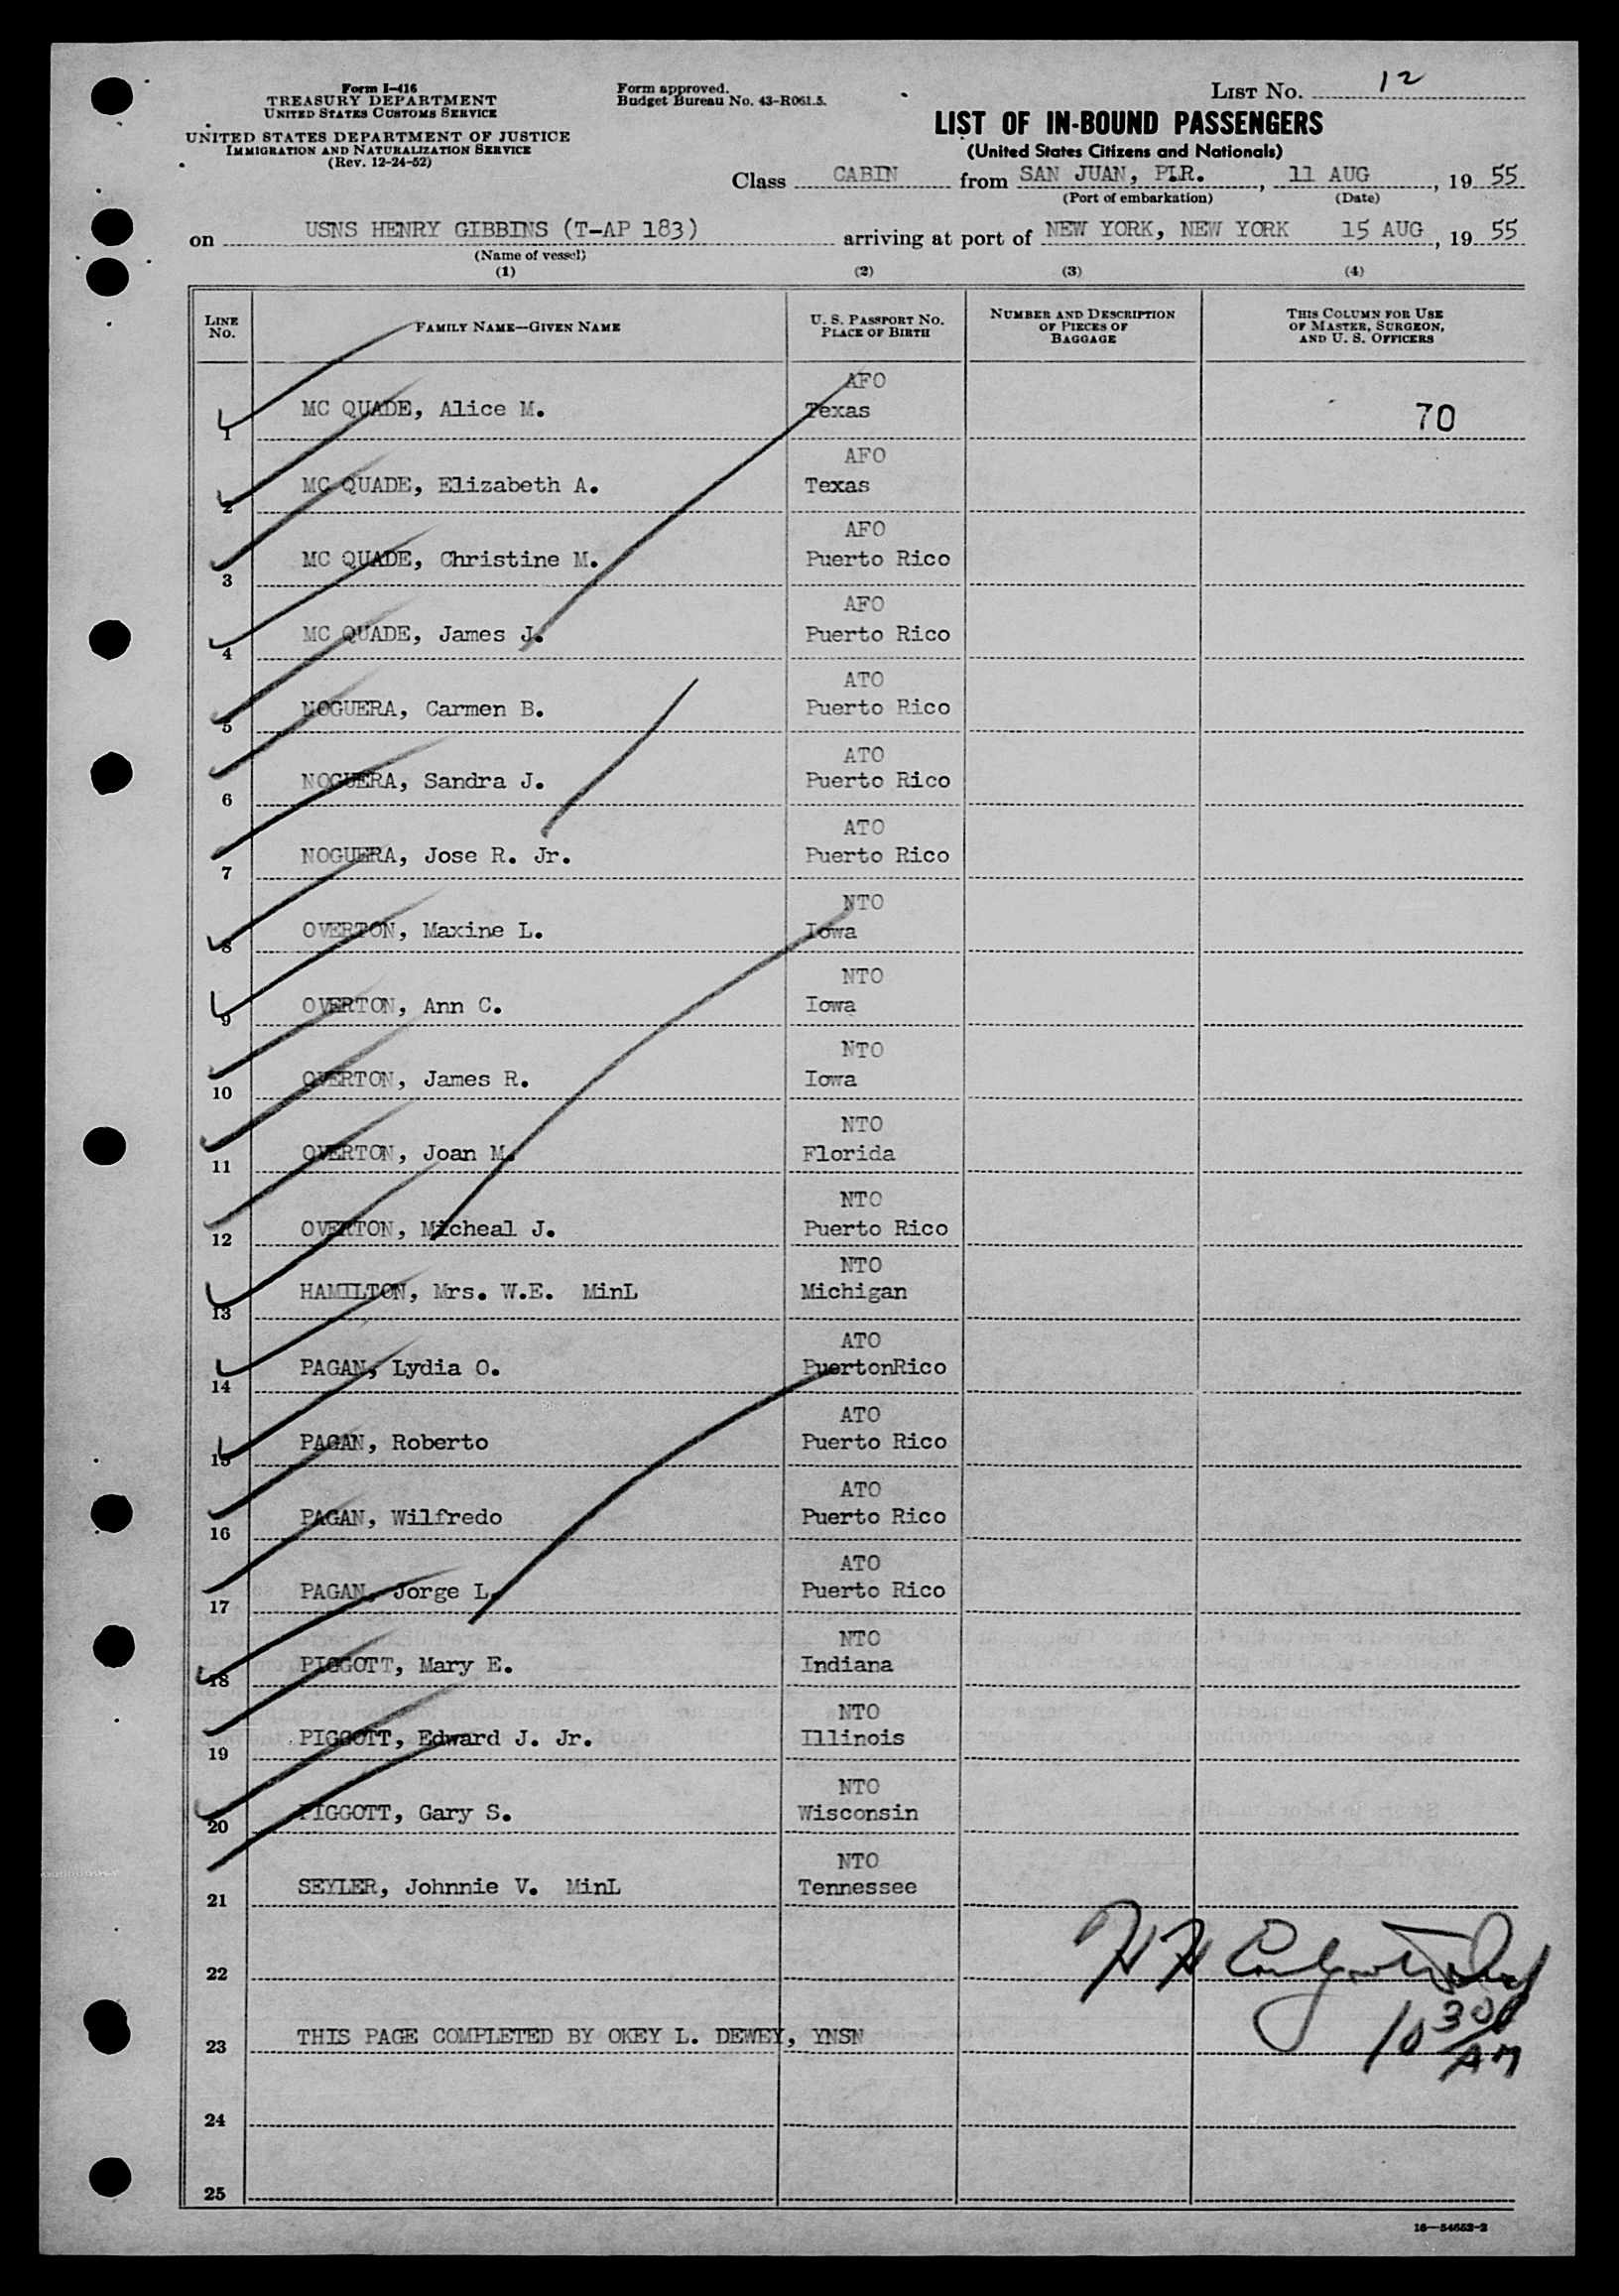 Form I-416
TREASURY DEPARTMENT
UNITED STATES CUSTOMS SERVICE
UNITED STATES DEPARTMENT OF JUSTICE
IMMIGRATION AND NATURALIZATION SERVICE
(Rev. 12-24-52)
Form approved.
Budget Bureau No. 43-R061.5.
LIST NO. 12
LIST OF IN-BOUND PASSENGERS
(United States Citizens and Nationals)
Class CABIN from SAN JUAN, P.R., 11 AUG, 19 55
(Port of embarkation) (Date)
on USNS HENRY GIBBINS (T-AP 183) arriving at port of NEW YORK, NEW YORK 15 AUG, 19 55
(Name of vessel)
(1) (2) (3) (4)
LINE NO. FAMILY NAME—GIVEN NAME U. S. PASSPORT NO. PLACE OF BIRTH NUMBER AND DESCRIPTION OF PIECES OF BAGGAGE THIS COLUMN FOR USE OF MASTER, SURGEON, AND U. S. OFFICERS
AFO
1 MC QUADE, Alice M. Texas 70
AFO
2 MC QUADE, Elizabeth A. Texas
AFO
3 MC QUADE, Christine M. Puerto Rico
AFO
4 MC QUADE, James J. Puerto Rico
ATO
5 NOGUERA, Carmen B. Puerto Rico
ATO
6 NOGUERA, Sandra J. Puerto Rico
ATO
7 NOGUERA, Jose R. Jr. Puerto Rico
NTO
8 OVERTON, Maxine L. Iowa
NTO
9 OVERTON, Ann C. Iowa
NTO
10 OVERTON, James R. Iowa
NTO
11 OVERTON, Joan M. Florida
NTO
12 OVERTON, Micheal J. Puerto Rico
NTO
13 HAMILTON, Mrs. W.E. MinL Michigan
ATO
14 PAGAN, Lydia O. PuertonRico
ATO
15 PAGAN, Roberto Puerto Rico
ATO
16 PAGAN, Wilfredo Puerto Rico
ATO
17 PAGAN, Jorge L. Puerto Rico
NTO
18 PIGGOTT, Mary E. Indiana
NTO
19 PIGGOTT, Edward J. Jr. Illinois
NTO
20 PIGGOTT, Gary S. Wisconsin
NTO
21 SEYLER, Johnnie V. MinL Tennessee
22
23 THIS PAGE COMPLETED BY OKEY L. DEWEY, YNSN
10 30 AM
24
25
16—54652-2